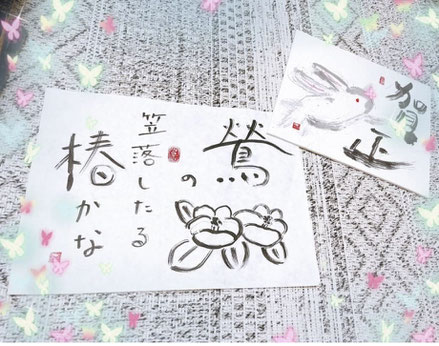 鶯の
笠落したる
椿かな
賀正